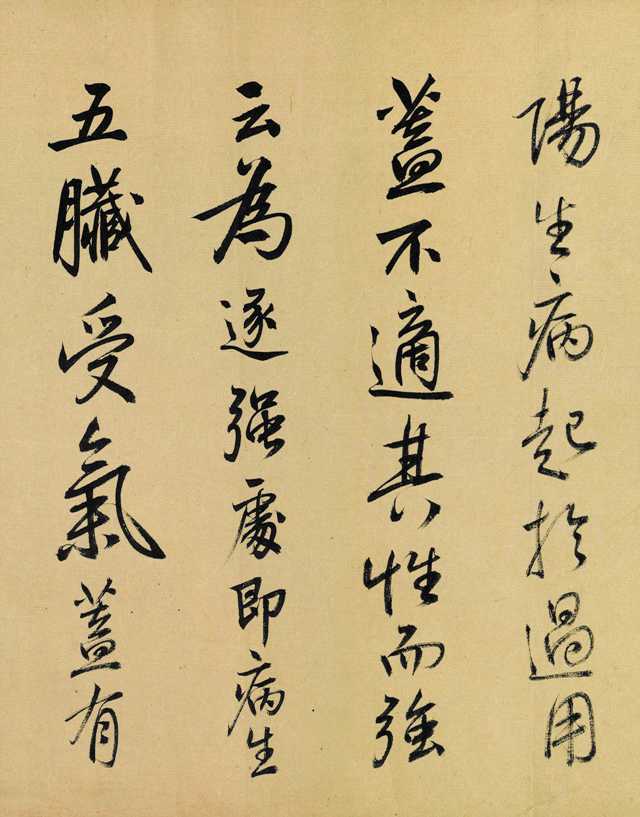 陽生病起於過用
蓋不適其性而強
云為逐强處即病生
五臟受氣蓋有